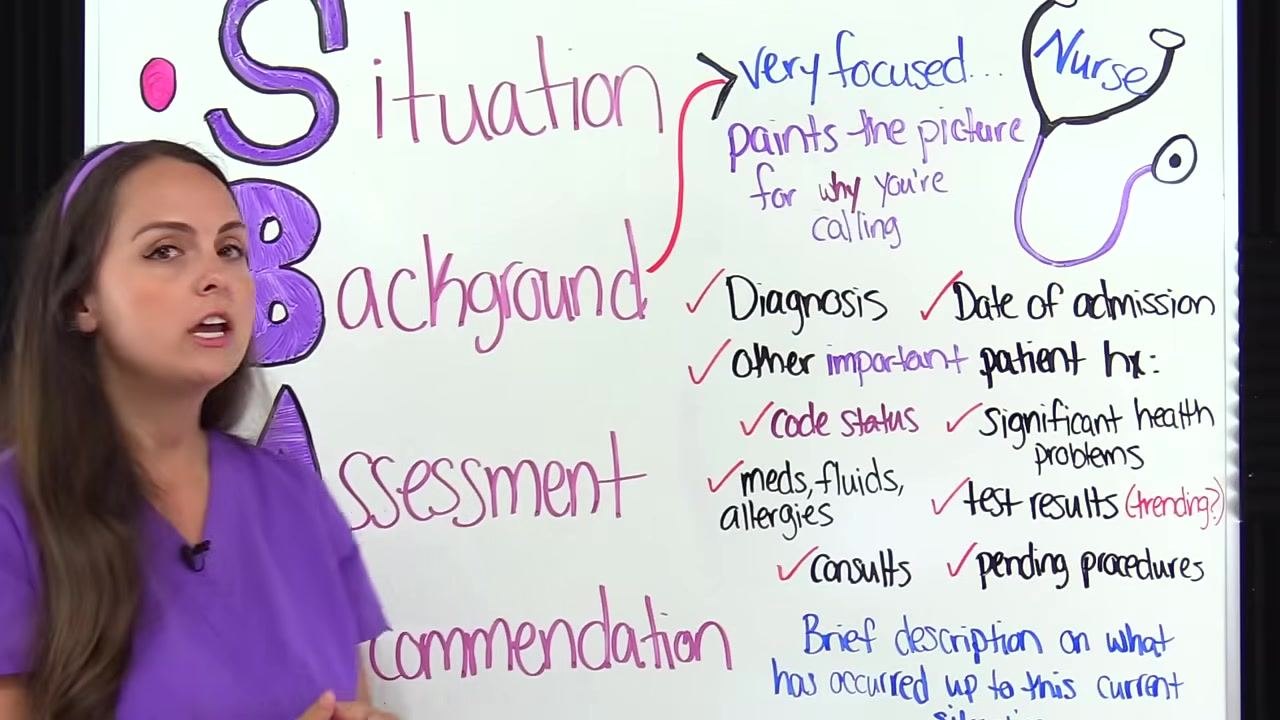 Situation
Background
Assessment
commendation
Nurse
very focused...
paints the picture
for why you're
calling
✓ Diagnosis ✓ Date of admission
✓ other important patient hx:
✓ code status ✓ significant health
problems
✓ meds, fluids,
allergies
✓ test results (trending?)
✓ consults ✓ pending procedures
Brief description on what
has occurred up to this current